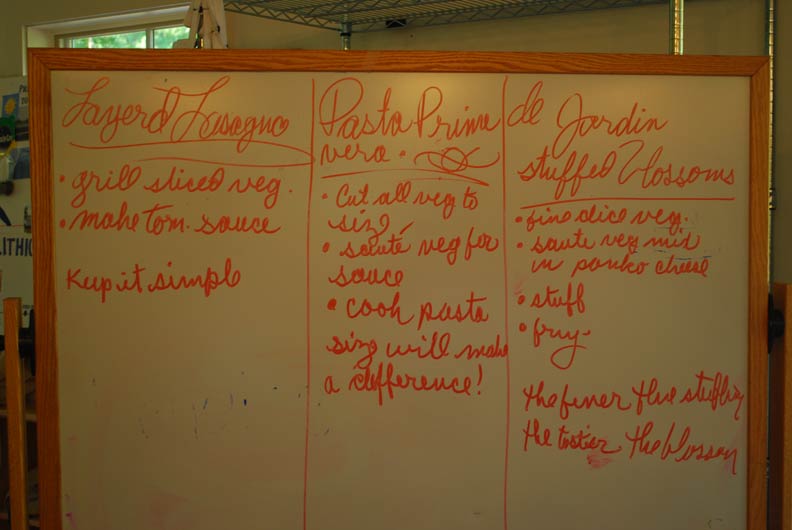 Layerd Lasagna
• grill sliced veg.
• make tom. sauce
Keep it simple
Pasta Prima
vera •
• Cut all veg to
size
• sauté veg for
sauce
• cook pasta
size will make
a difference!
de Jardin
stuffed Blossoms
• fine dice veg.
• saute veg mix
in panko cheese
• stuff
• fry.
the finer the stuffing
the tastier the blossom
LITHIC